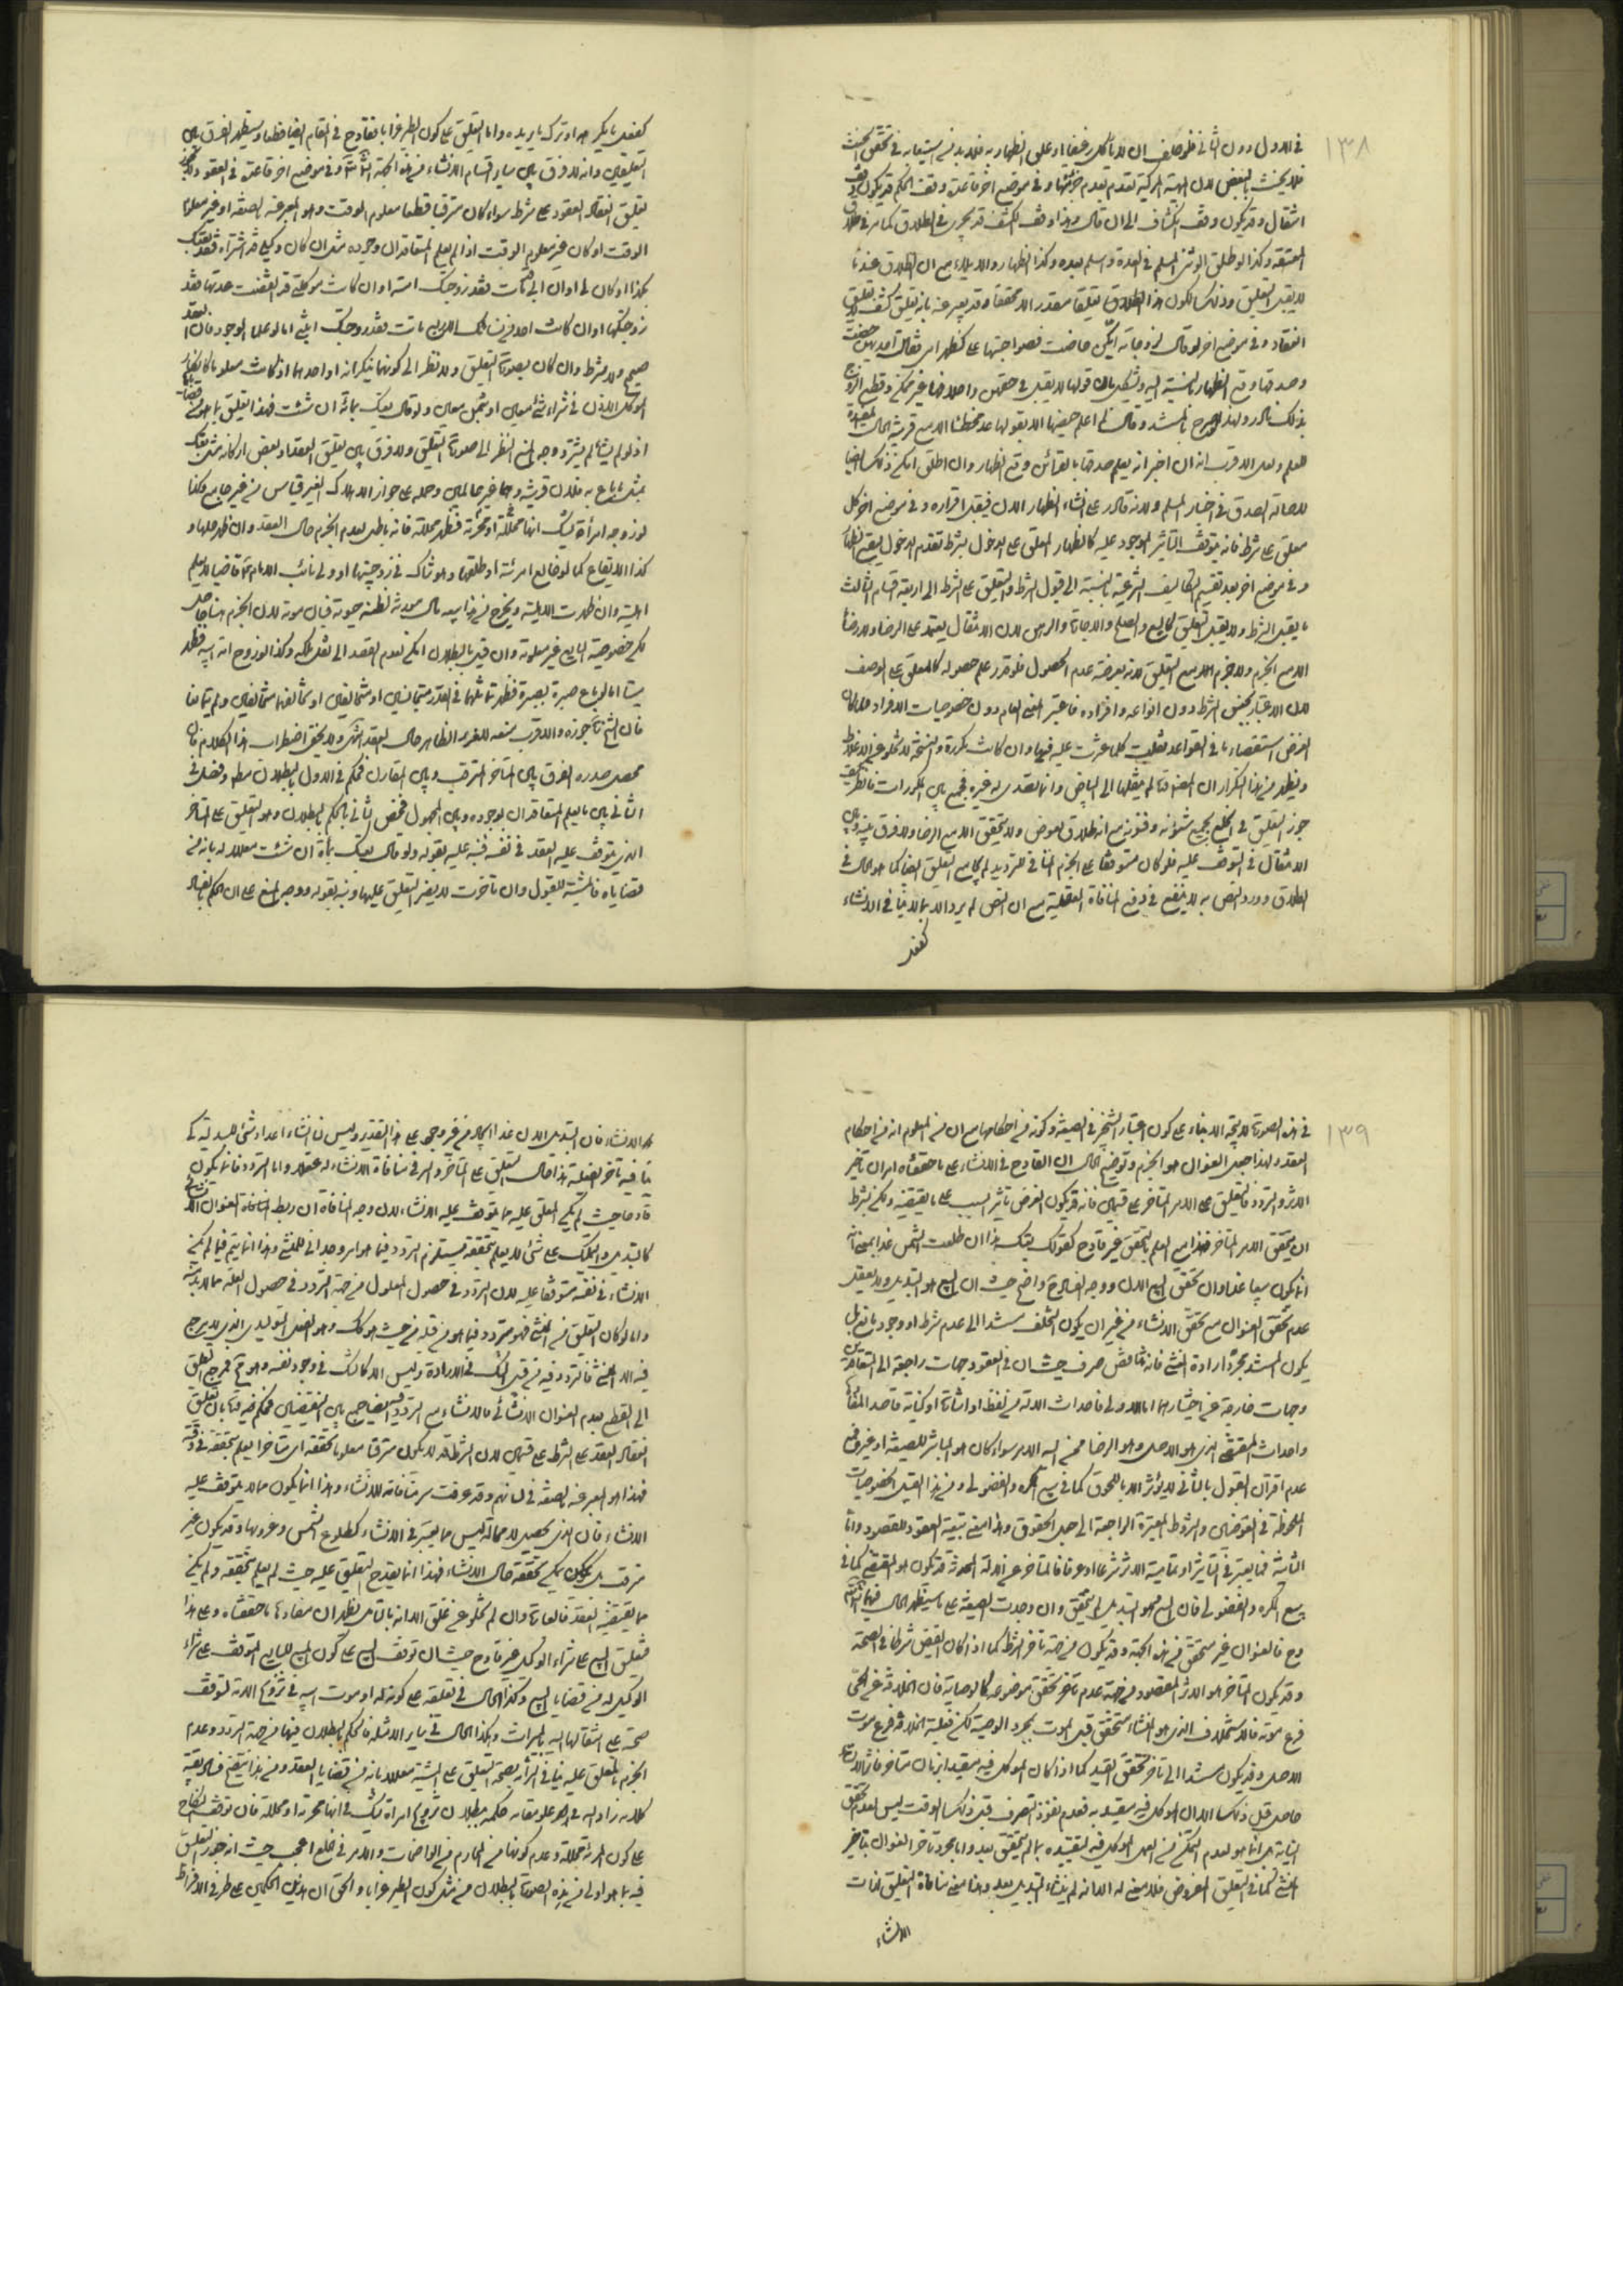 ١٣٨
في الاول دون الثاني فلو حلف ان لا يأكل رغيفا او علق الظهار به فلا بد من استيعابه في تحقق الحنث
فلا يحنث بالبعض لان الهيئة المركبة تنعدم بعدم جزئها وفي موضع اخر قاعدة وقف الحكم قد يكون وقف
انتقال وقد يكون وقف انكشاف الى ان قال وهذا وقف الكشف قد يجري في الطلاق كما في طلاق
وكذا لو طلق الوثني المسلم في العدة واسلم بعده وكذا الظهار والايلاء مع ان الطلاق عندنا
لا يقبل التعليق وذلك لكون هذا الطلاق تعليقا مقدرا لا محققا وقد يعبر عنه بانه تعليق كشف لا تعليق
انعقاد وفي موضع اخر لو قال لزوجاته ايتكن حاضت فصواحبتها علي كظهر امي فقالت احديهن حضت
وصدقها وقع الظهار بالنسبة اليه ويشكل بان قولها لا يقبل في حقهن واحلافها غير ممكن وقطع الزوج
بذلك نادر ولهذا لو صرح بالمستند وقال لم اعلم حيضها الا بقولها عد مخطئا الا مع قرينة الحال المفيدة
للعلم ولعل الاقرب انه ان اخبر انه يعلم صدقها بالقرائن وقع الظهار وان اطلق امكن ذلك ايضا
لاصالة الصدق في اخبار المسلم ولانه قادر على انشاء الظهار الان فيقبل اقراره وفي موضع اخر كل
معلق على شرط فانه يتوقف التأثير الموجود عليه كالظهار المعلق على الدخول بشرط تقدم الدخول ليقع الظهار
وفي موضع اخر بعد تقسيم التكاليف الشرعية بالنسبة الى قبول الشرط والتعليق على الشرط الى اربعة اقسام الثالث
ما يقبل الشرط ولا يقبل التعليق كالبيع والصلح والاجارة والرهن لان الانتقال يعتمد على الرضا ولا رضا
الا مع الجزم ولا جزم الا مع التعليق لانه بعرضة عدم الحصول فلو قدر علم حصوله كالمعلق على الوصف
لان الاعتبار بجنس الشرط دون انواعه وافراده فاعتبر المعنى العام دون خصوصيات الافراد
الغرض استقصاء ما في القواعد كلما عثرت عليه فيها وان كانت مكررة والنسخة لا تخلو عن الاغلاط
ويظهر من هذا التكرار ان المصنف لم ينقلها الى البياض وانما تصدى له غيره فجمع بين المكررات فانظر كيف
جوز التعليق في الخلع بجميع شئونه وفنونه مع انه طلاق بعوض ولا يتحقق الا مع الرضا ولا فرق بينه وبين
الانتقال في التوقف عليه فلو كان متوقفا على الجزم المنافي للترديد لم يجامع التعليق ايضا كما هو الحال في
الطلاق وورود النص به لا ينفع في دفع المنافاة العقلية مع ان النص لم يرد الا بما لا ينافي الانشاء
كقصد

كقصد ما يكره او ترك ما يريده واما التعليق على كون الطير غرابا فقادح في المقام ايضا قطعا وسيظهر الفرق بين
التعليقين وانه لا فرق بين ساير اقسام الانشاء من هذه الجهة انشاءالله وفي موضع اخر قاعدة في العقود لا يجوز
تعليق انعقاد العقود على شرط سواء كان مترقبا قطعا معلوم الوقت وهو المعبر عنه بالصفة او غير معلوم
الوقت او كان غير معلوم الوقت اذا لم يعلم المتعاقدان وجوده مثل ان كان وكيلي قد اشتراه فقد بعتك
بكذا او كان لي او ان ابي مات فقد زوجتك امته او ان كانت موكلتي قد انقضت عدتها فقد
زوجتكها او ان كانت احد من نسائك الاربع ماتت فقد زوجتك ابنتي اما لو علما الوجود فان العقد
صحيح ولا شرط وان كان بصورة التعليق ولا نظر الى كونهما ينكرانه او احدهما اذ كانت معلوما كانكار
الموكل الاذن في شراء شئ معين او بثمن معين ولو قال بعتك بمائة ان شئت فهذا تعليق بما هو من قضاياه
اذ لو لم يشأ لم يشتر ووجه المنع النظر الى صورة التعليق ولا فرق بين تعليق العقد او بعض اركانه مثل بعتك
بمثل ما باع به فلان فرسه وهما غير عالمين وحمله على جواز الاهلاك الغير قياس من غير جامع وكذا
لو زوجه امرأة يشك انها محللة او محرمة فظهر محللة فانه باطل لعدم الجزم حال العقد وان ظهر حلها و
كذا الايقاع كما لو خالع امرئته او طلقها وهو شاك في زوجيتها او ولى نائب الامام قاضيا لا يعلم
اهليته وان ظهرت الاهلية ويخرج من هذا بيعه مال مورثه لظنه حيوته فبان موته لان الجزم هنا حاصل
لكن خصوصية البايع غير معلومة وان قيل بالبطلان امكن لعدم القصد الى نقل ملكه وكذا لو زوج امة ابيه فظهر
ميتا اما لو باع صبرة بصبرة فظهر تماثلهما في القدر متجانسين او متخالفين او تخالفهما متخالفين ولم يتمانعا
فان الشيخ تجوزه والاقرب منعه للغرر الظاهر حال العقد انتهى ولا يخفى اضطراب هذا الكلام فان
محصل صدره الفرق بين المتاخر المترقب وبين المقارن فحكم في الاول بالبطلان مطلقا وفصل في
الثاني بين ما يعلم المتعاقدان بوجوده وبين المجهول فخص الثاني بالحكم بالبطلان وهو التعليق على المتاخر
الذي يتوقف عليه العقد في نفسه فنبه عليه بقوله ولو قال بعتك بمائة ان شئت معللا له بانه من
قضاياه فالمشية للقبول وان تأخرت لا يضر التعليق عليها ونبه بقوله ووجه المنع على ان الحكم بالصحة

١٣٩
في هذه الصورة لا يتجه الا بناء على كون اعتبار التنجز في الصيغة وكونه من احكامها مع ان من المعلوم انه من احكام
العقد ولهذا جعل العنوان هو الجزم وتوضيح الحال ان القادح في الانشاء على ما حققناه امران تأخر
الاثر والتردد فالتعليق على الامر المتاخر على قسمين فانه قد يكون الغرض تأثير السبب على ما يقتضيه ولكن بشرط
ان يتحقق الامر المتاخر فهذا مع العلم بالتحقق غير قادح كقولك بعتك هذا ان طلعت الشمس غدا بمعنى انه
انما يكون مبيعا غدا وان تحقق البيع الان ووجه الصحة واضح حيث ان البيع هو التبديل ولا يعقل
عدم تحقق العنوان مع تحقق الانشاء من غير ان يكون التخلف مستندا الى عدم شرط او وجود مانع بل
يكون المستند مجرد ارادة المنشئ فانه تناقض صرف حيث ان في العقود جهات راجعة الى المتعاقدين
وجهات خارجة عن اختيارهما اما الاولى فاحداث الالة من لفظ او اشارة او كتابة قاصدا لمعانيها
واحداث المقتضى الذي هو الاصل وهو الرضا ممن اليه الامر سواء كان هو المباشر للصيغة او غيره فمع
عدم اقتران القبول بالثاني لا يؤثر الا باللحوق كما في بيع المكره والفضولي ومن هذا القبيل الخصوصيات
الملحوظة في العوضين والشروط المعتبرة الراجعة الى جعل الحقوق وهذا معنى تبعية العقود للقصود واما
الثانية فما يعتبر في التأثير او تمامية الاثر شرعا او عرفا فالمتاخر عن الالة المحدثة قد يكون هو المقتضي كما في
بيع المكره والفضولي فان البيع هو التبديل لم يتحقق وان وجدت الصيغة على ما سيظهر الحال فيهما انشاءالله
وح فالعنوان غير متحقق من هذه الجهة وقد يكون من جهة تأخر الشرط كما اذا كان القبض شرطا في الصحة
وقد يكون المتاخر هو الاثر المقصود من جهة عدم تأخر تحقق موضوعه كالوصاية فان الخلافة عن الميت
فرع موته فالاستخلاف الذي هو المنشاء متحقق قبل الموت بمجرد الوصية لكن فعلية الخلافة فرع موت
الاصل وقد يكون مستندا الى تأخر تحقق القيد كما اذا كان الموكل فيه مقيدا بزمان متاخر فان الاذن
حاصل قبل ذلك الا ان الموكل فيه مقيد به فعدم نفوذ التصرف قبل ذلك الوقت ليس لعدم تحقق
النيابة بل انما هو لعدم التمكن من العمل الموكل فيه لتقييده بما لم يتحقق بعد واما مجرد تأخر العنوان بتأخير
المنشئ كما في التعليق المفروض فلا معنى له الا انه لم ينشاء التبديل بعد وهذا معنى منافاة التعليق لذات
الانشاء

الانشاء فان التبديل الان غدا ايجاد من غير وجه على هذا التقدير وليس انشاء اعداد شئ للبدلية كي
ينافيه تأخر الفعلية هذا حال التعليق على المتاخر والسر في منافاة الانشاء له عقلا واما التردد فانما يكون
قادحا حيث لم يكن المعلق عليه مما يتوقف عليه الانشاء لان وجه المنافاة ان ربط اضافة العنوان الانشائي
كالتبديل والتملك على شئ لا يعلم بتحققه يستلزم التردد فيما هو امر وجداني للمنشئ وهذا انما يتم فيما لم يكن
الانشاء في نفسه متوقفا عليه لان التردد في حصول المعلول من جهة التردد في حصول العلة مما لا بد منه
واما لو كان التعليق من المنشئ فهو متردد فيما هو من قبله من حيث هو كك وهو الفعل التوليدي الذي لا يرجع
فيه الا الى المنشئ فالتردد فيه من قبيل الشك في الارادة وليس الا كالشك في وجود نفسه وهو مح فمرجع التعليق
الى القطع بعدم العنوان الانشائي فالانشاء مع الترديد جمع بين النقيضين فحكم فيه بان تعليق
انعقاد العقد على الشرط على قسمين لان الشرط قد يكون مترقبا معلوما تحققه اي متاخرا يعلم بتحققه في وقته
فهذا هو المعبر عنه بالصفة في لسانهم وقد عرفت سر منافاته للانشاء وهذا انما يكون مما لا يتوقف عليه
الانشاء فان الذي يحصل لا محالة ليس مما يعتبر في الانشاء كطلوع الشمس وغروبها وقد يكون غير
مترقب بل يكون مما يمكن تحققه حال الانشاء فهذا انما يقدح التعليق عليه حيث لم يعلم بتحققه ولم يكن
مما يقتضيه العقد فالعبارة وان لم تخلو عن غلق الا انه بالتأمل يظهر ان مفادها ما حققناه وعلى هذا
فتعليق البيع على شراء الوكيل غير قادح حيث ان توقف البيع على كون المبيع للبايع المتوقف على شراء
الوكيل له من قضايا البيع وكذا الحال في تعليقه على كونه له او موت ابيه في تزويج الامة لتوقف
صحته على انتقالها اليه بالميراث وهكذا الحال في ساير الامثلة فالحكم بالبطلان فيها من جهة التردد وعدم
الجزم بالمعلق عليه ينافي التزامه بصحة التعليق على المشية معللا بانه من قضايا العقد ومن هذا يتضح فساد بقية
كلامه زاد الله في علو مقامه حكمه ببطلان تزويج امراة يشك في انها محرمة او محللة فان توقف النكاح
على كون المرئة محللة وعدم كونها من المحارم من الواضحات والامر في الخلع اعجب حيث انه جوز التعليق
فيه بما هو اولى من هذه الصورة بالبطلان من مثل كون الطير غرابا والحق ان هذين الحكمين على طرفي الافراط